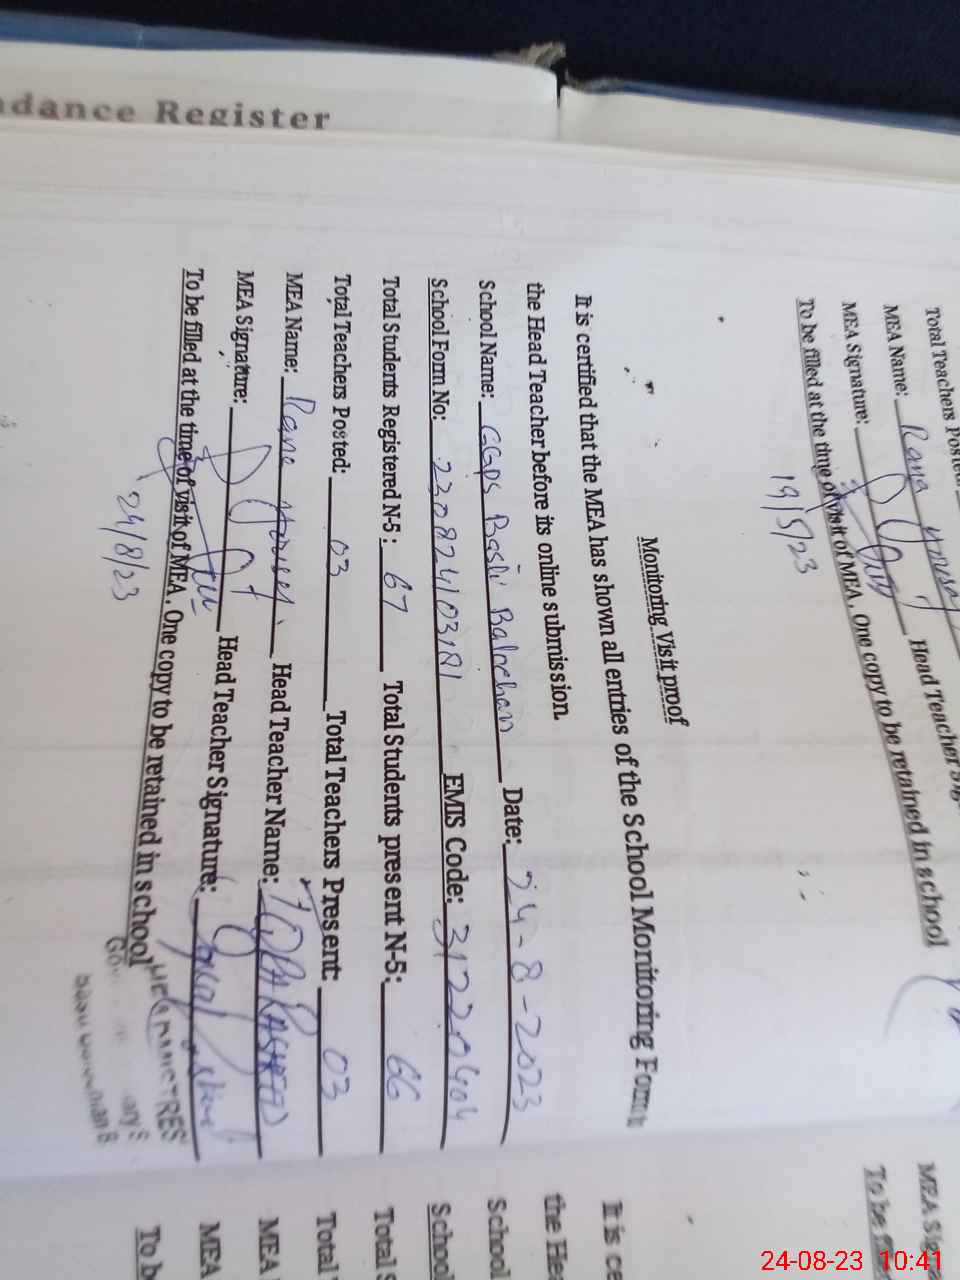 dance Register
Total Teachers Posted
MEA Name: Rana
MEA Signature: Head Teacher Sig
To be filled at the time of visit of MEA. One copy to be retained in school
19/5/23
Monitoring Visit proof
It is certified that the MEA has shown all entries of the School Monitoring Form to
the Head Teacher before its online submission.
School Name: GGPS Basti Balochan Date: 24-8-2023
School Form No: EMIS Code: 31220404
Total Students Registered N-5: 67 Total Students present N-5: 66
Total Teachers Posted: 03 Total Teachers Present: 03
MEA Name: Rana Head Teacher Name: IQRA RASHEED
MEA Signature: Head Teacher Signature:
To be filled at the time of visit of MEA. One copy to be retained in school
24/8/23
It is ce
the Hea
School
School
Total S
Total
MEA
MEA
To b
MEA Sign
To be fille
24-08-23 10:41